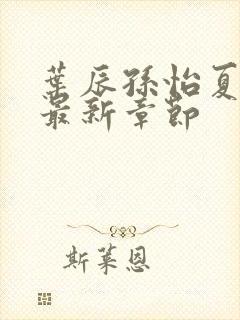 葉辰孫怡夏
最新章節
斯萊恩